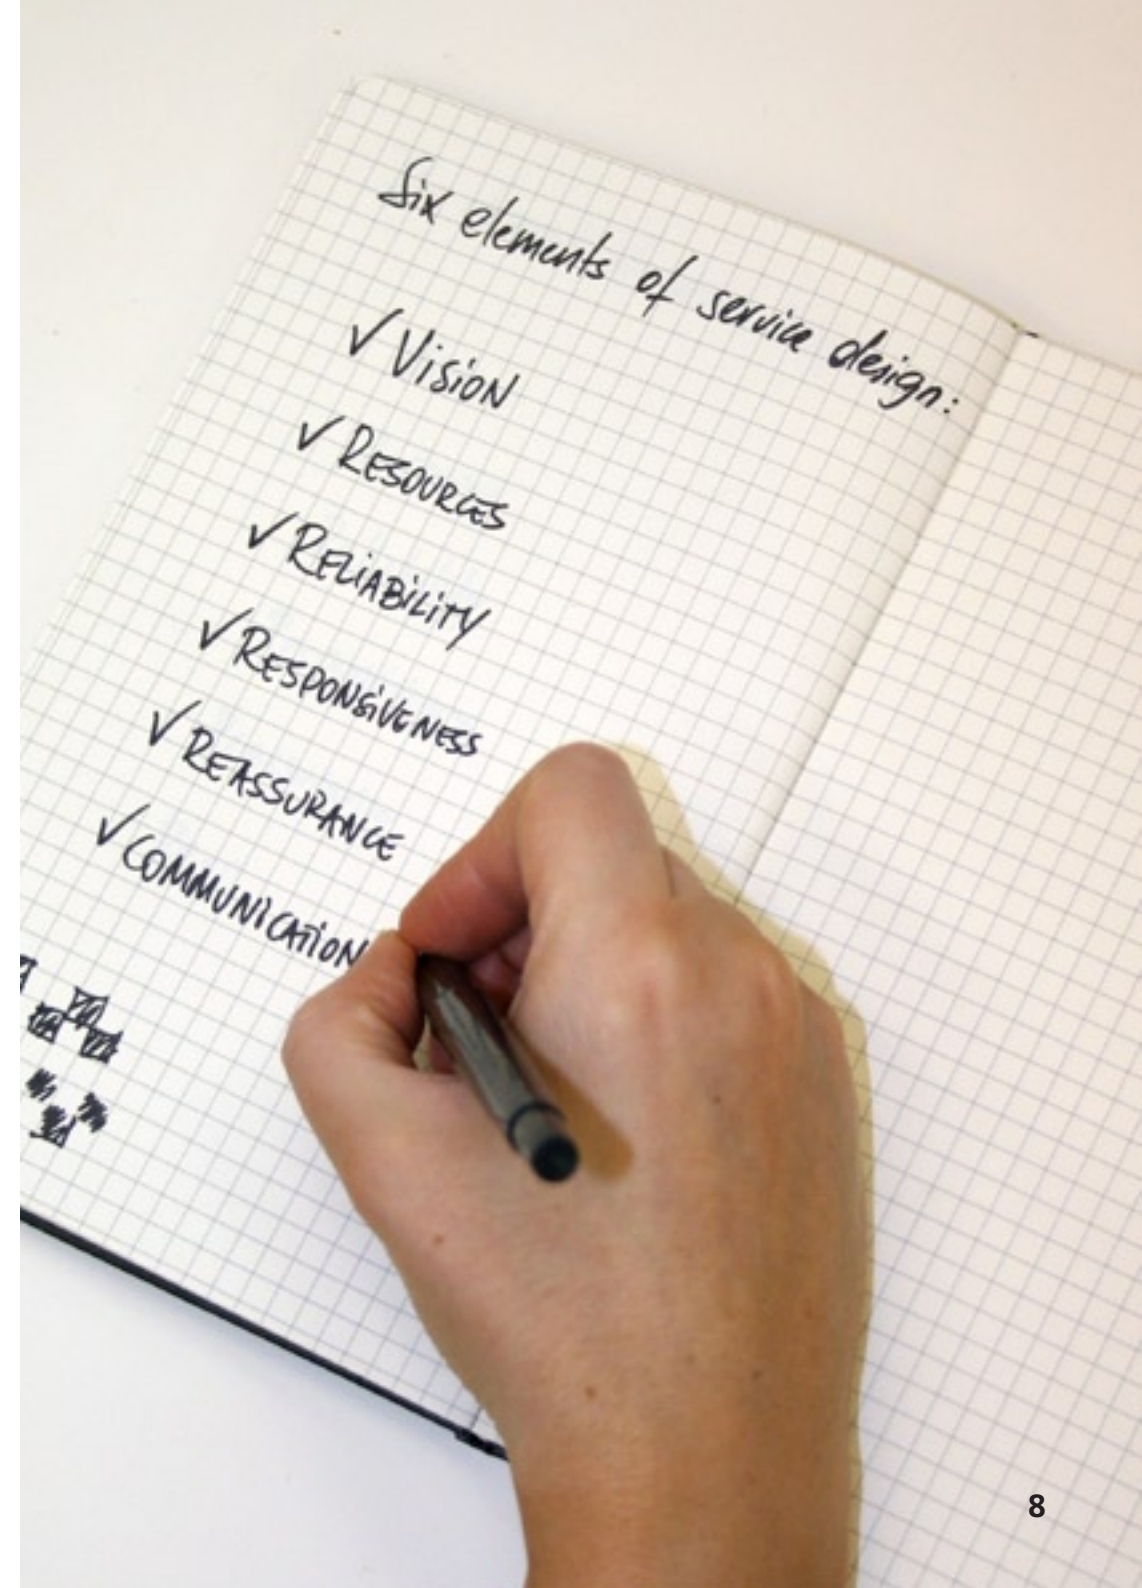 Six elements of service design:
✓ Vision
✓ RESOURCES
✓ RELIABILITY
✓ RESPONSIVENESS
✓ REASSURANCE
✓ COMMUNICATION
8